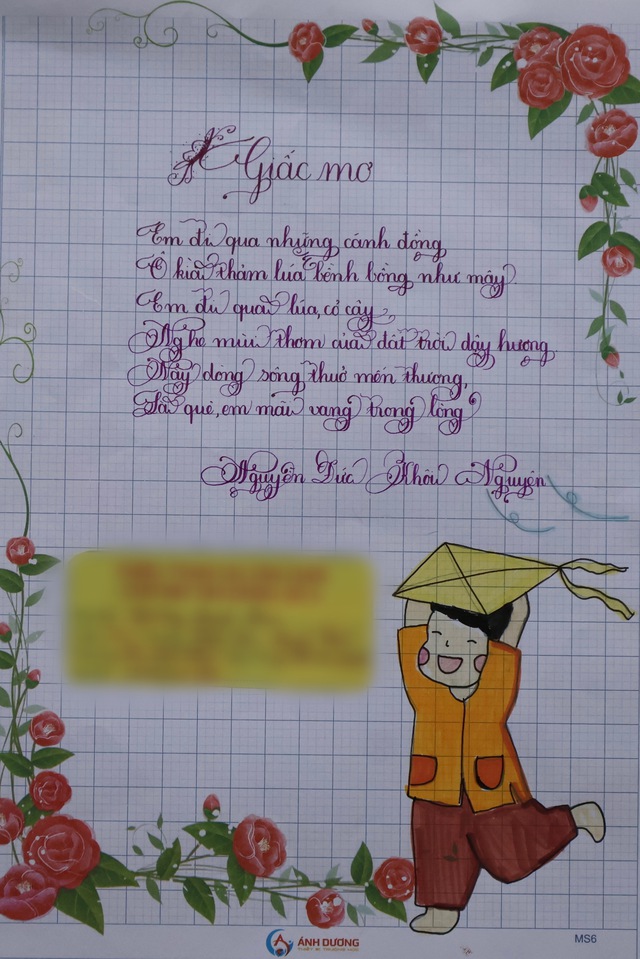 Giấc mơ
Em đi qua những cánh đồng
Ô kìa thảm lúa bềnh bồng như mây
Em đi qua lúa, cỏ cây,
Nghe mùi thơm của đất trời dậy hương.
Này dòng sông thuở mến thương,
Là quê, em mãi vang trong lòng
Nguyễn Đức Khôi Nguyên
ÁNH DƯƠNG
THIẾT BỊ TRƯỜNG HỌC
MS6